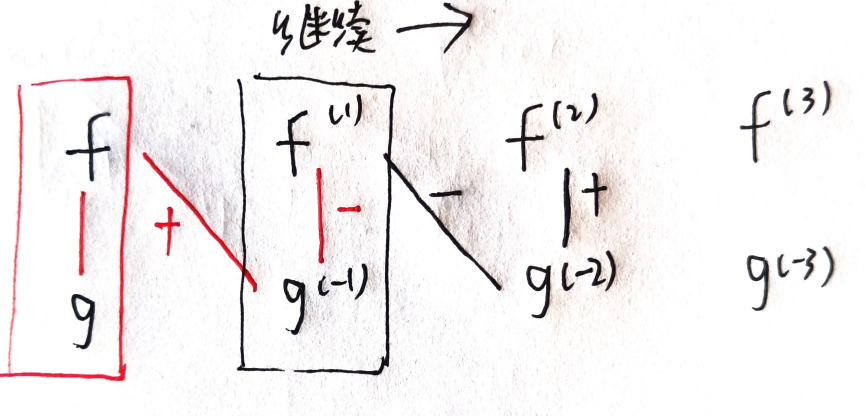 继续 →
f f(1) f(2) f(3)
+ - - +
g g(-1) g(-2) g(-3)